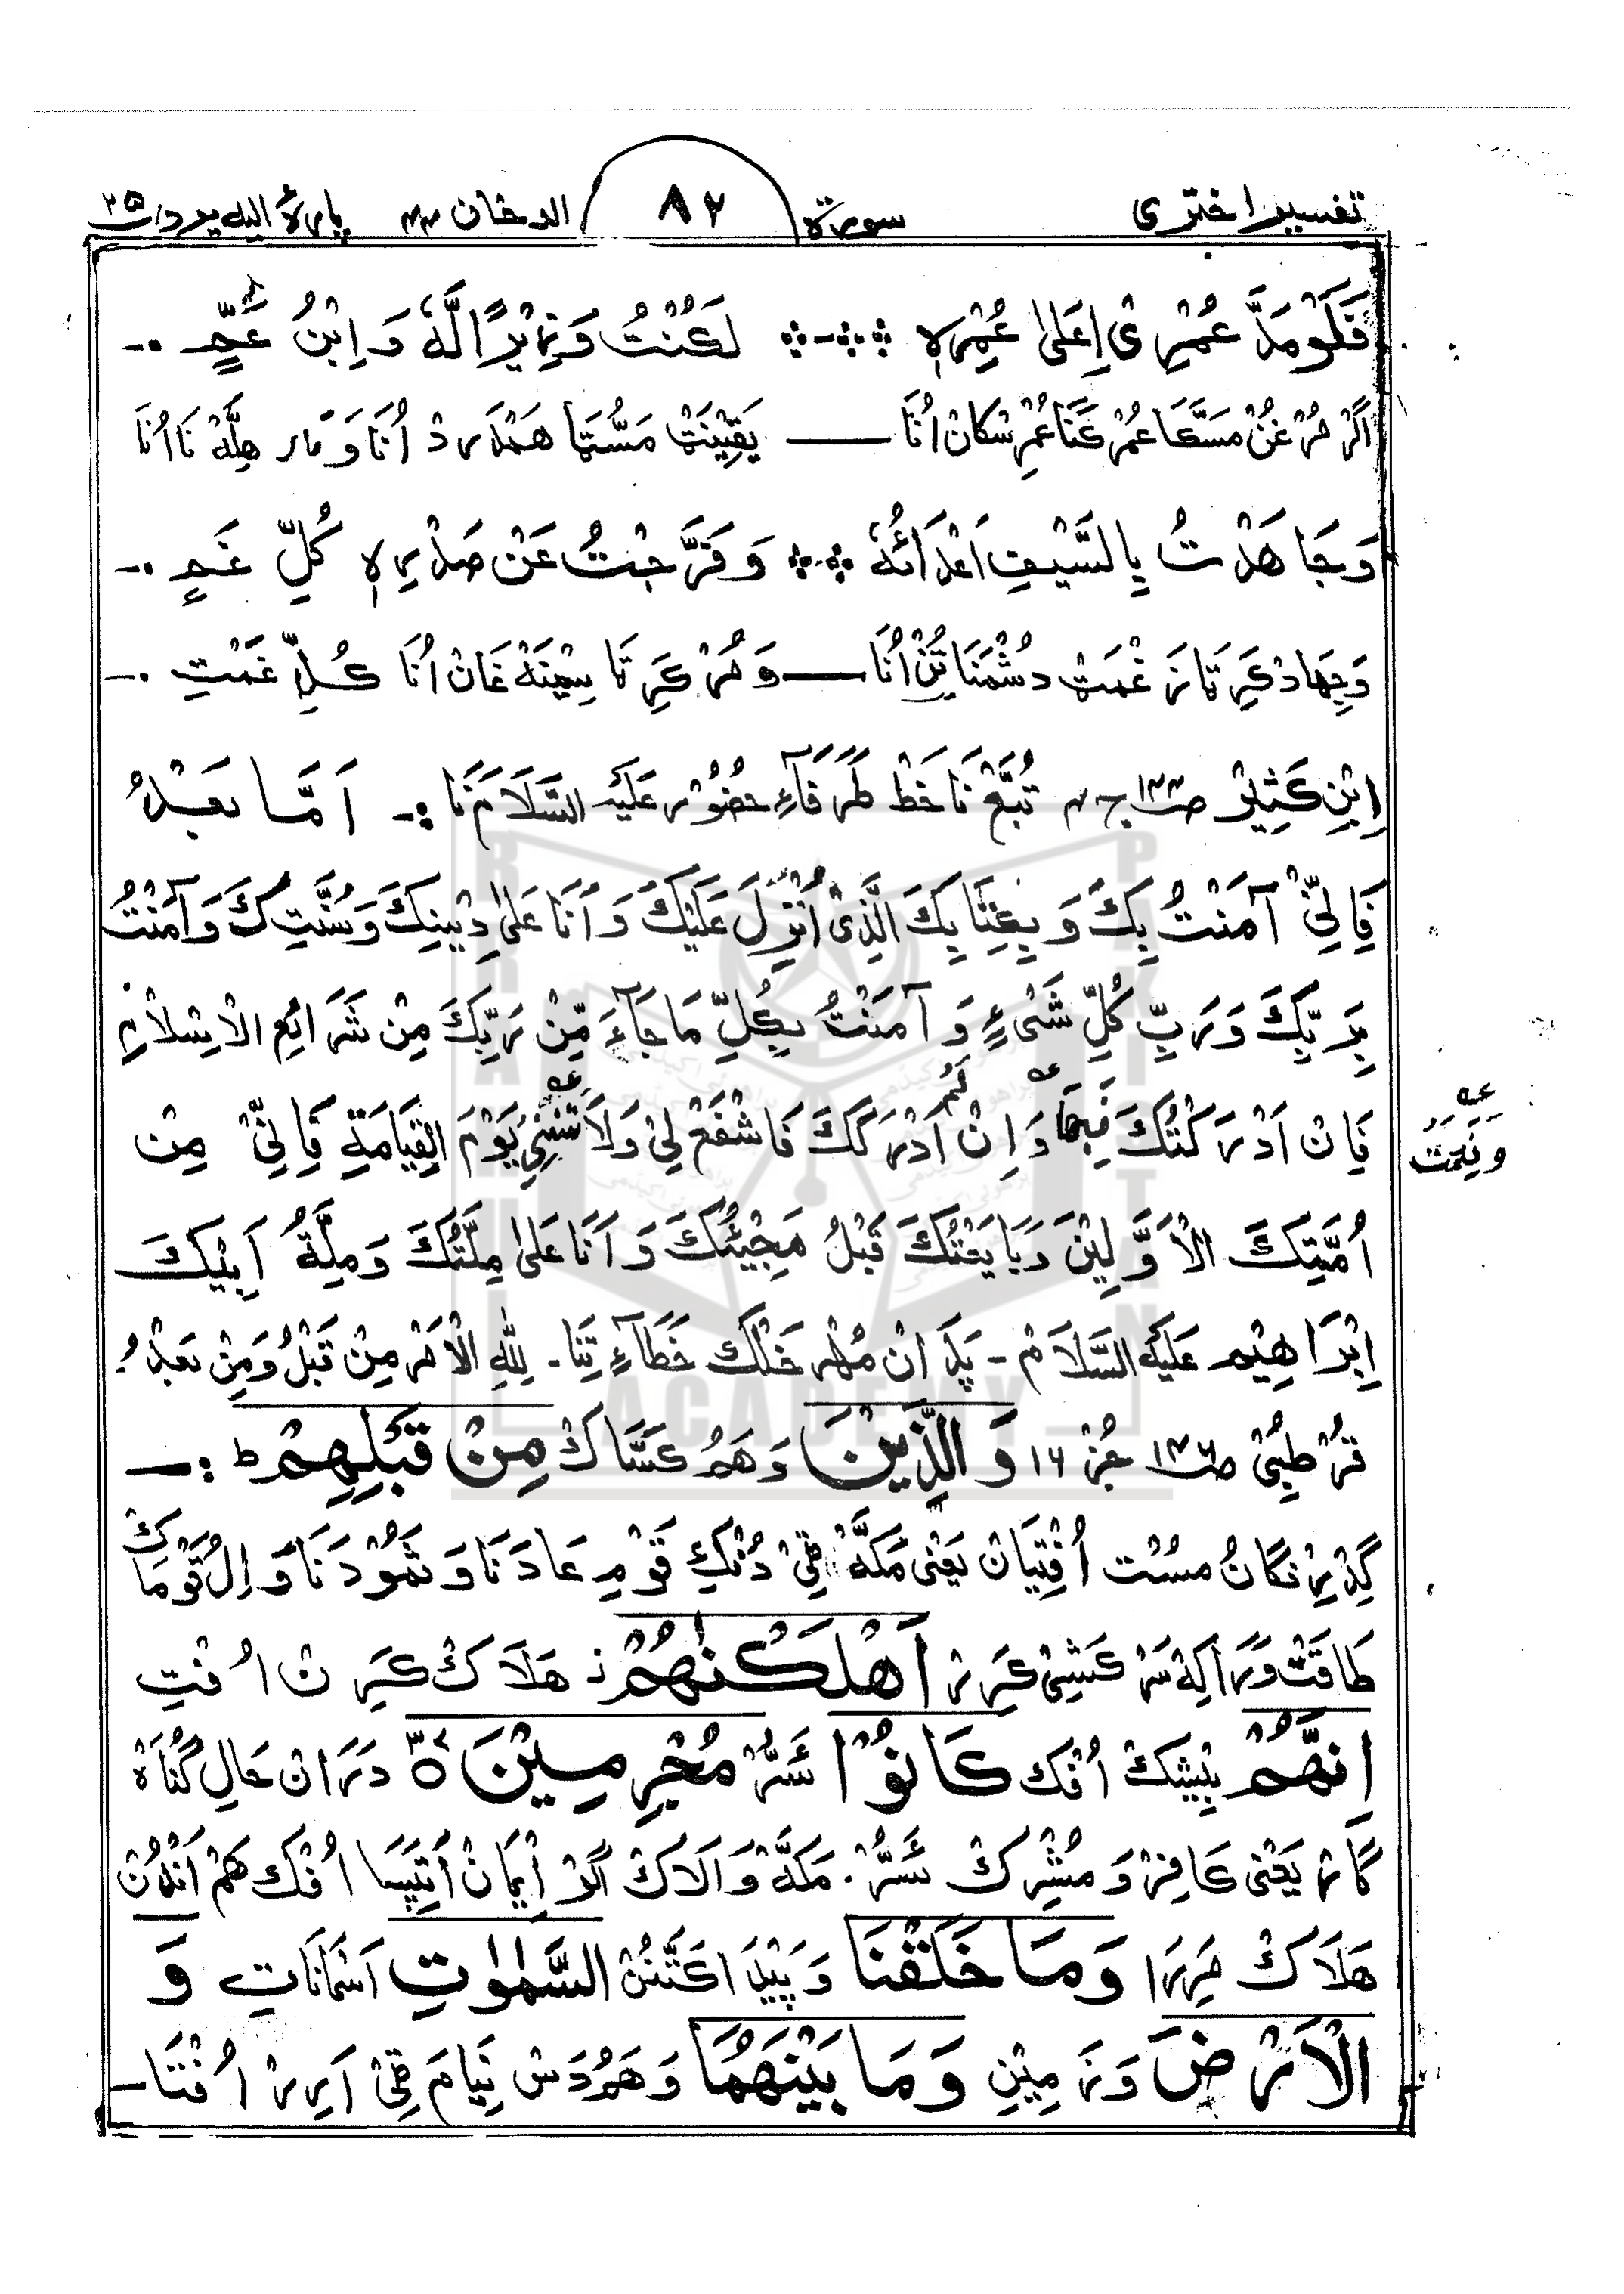 تفسیر اختری سورة ۸۲ الدخان ۴۴ پارهٔ الیه یرد ۲۵
فَلَوْ مَدَّ عُمْرِیْ اِعَلٰی عُمْرِهٖ لَكُنْتُ وَزِیْرًا لَّهٗ وَ ابْنُ عَمٍّ
اگر مُرْغُنْ مَسَّکَا عُمْر کَنَا عُمْرِسْکَانْ اُنَا — یَقِیْنَتْ مَسُّتَا هَمْدَرْدْ اُنَا وَ مَار هِلَّهْ نَا اُنَا
وَجَاهَدْتُ بِالسَّیْفِ اَعْدَائَهٗ وَفَرَّجْتُ عَنْ صَدْرِهٖ كُلِّ غَمٍ
وَجِهَادْ کَرِتَانَ زَغْمَتْ دُشْمَنَاتَنْ اُنَا — وَ مُرْکَرِتَا سِیْنَهْ غَانْ اُنَا کُلِّ غَمْتِ
اِبْنِ کَثِیْرْ ص۱۴۴ ج۴ تُبَّعْ نَا خَطْ طَرَفَآءِ حضُوْر عَلَیْهِ السَّلَامْ نَا :- اَمَّا بَعْدُ
فَاِنِّیْ آمَنْتُ بِكَ وَ بِكِتَابِكَ الَّذِیْ اُنْزِلَ عَلَیْكَ وَ اَنَا عَلٰی دِیْنِكَ وَسُنَّتِكَ وَ آمَنْتُ
بِرَبِّكَ وَرَبِّ كُلِّ شَیْءٍ وَ آمَنْتُ بِكُلِّ مَا جَآءَ مِّنْ رَبِّكَ مِنْ شَرَائِعِ الْاِسْلَامِ
فَاِنْ اَدْرَكْتُكَ فَبِهَا وَ اِنْ لَّمْ اَدْرَكَكَ فَاشْفَعْ لِیْ وَلَا تَنْسَنِیْ یَوْمَ الْقِیَامَةِ فَاِنِّیْ مِنْ
وَنِعْمَتْ
اُمَّتِكَ الْاَوَّلِیْنَ وَبَایَعْتُكَ قَبْلُ مَجِیْئِكَ وَ اَنَا عَلٰی مِلَّتِكَ وَمِلَّةُ اَبِیْكَ
اِبْرَاهِیْم عَلَیْهِ السَّلَامْ - پَدَ انْ مُهْر خَلْك خَطَآءِ تِنَا - لِلّٰهِ الْاَمْرُ مِنْ قَبْلُ وَمِنْ بَعْدُ
قُرْطِبُیْ ص۱۴۶ جُزْ ۱۶ وَ الَّذِیْنَ وَ هَمُ کَسَّاكْ مِنْ قَبْلِهِمْ ط :-
گِدْرِیْنگَانُ مسُسْت اُفْتِیَانْ یَعْنیٰ مَکَّهْ ٹِیْ دُنْكِ قَوْمِ عَادَنَا وَ ثَمُوْدَنَا وَ اِلُ قَوْمَاكْ
طَاقَتْوَرَا کِهْ سَرْکَشِیْ کَرِرْ اَهْلَكْنٰهُمْ ز هَلَاكْ کَرِنْ اُفْتِ
اِنَّهُمْ بَیْشِكْ اُفْك كَانُوْا اَسُّرْ مُجْرِمِیْنَ ۝۳۷ دَرَانْ حَالِ گُنَاهْ
گَارْ یَعْنیٰ کَافِرْ وَ مُشْرِكْ اَسُّرْ. مَکَّهْ وَالَاكْ اگَرْ اِیْمَانْ اَتِیْسَا اُفْك هَمْ اَنْدُنْ
هَلَاكْ مَرِرَا وَمَا خَلَقْنَا وَ پَیْدَا کَتَّنُنْ السَّمٰوٰتِ اَسْمَانَاتِ وَ
الْاَرْضَ وَ زَمِیْنِ وَمَا بَیْنَهُمَا وَ هَمُ دَسْ نِیَامَ ٹِیْ اَرِرْ اُفْتَا-
BRAHUI ACADEMY PAKISTAN